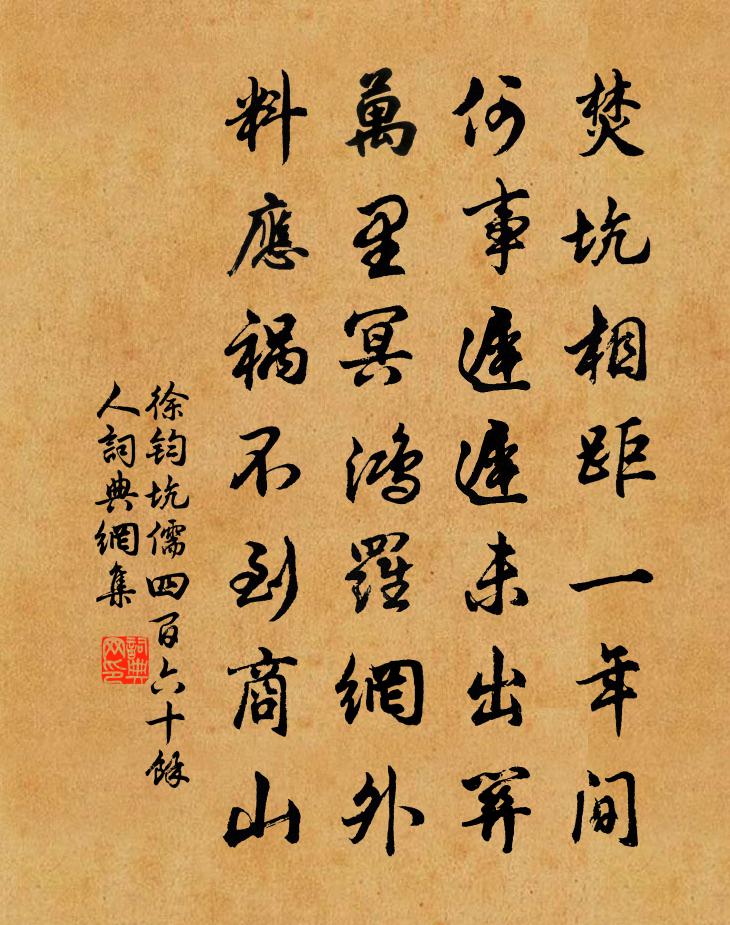 焚坑相距一年間
何事遲遲未出關
萬里冥鴻羅網外
料應禍不到商山
徐鈞坑儒四百六十餘
人詞典網集
詞典
网印